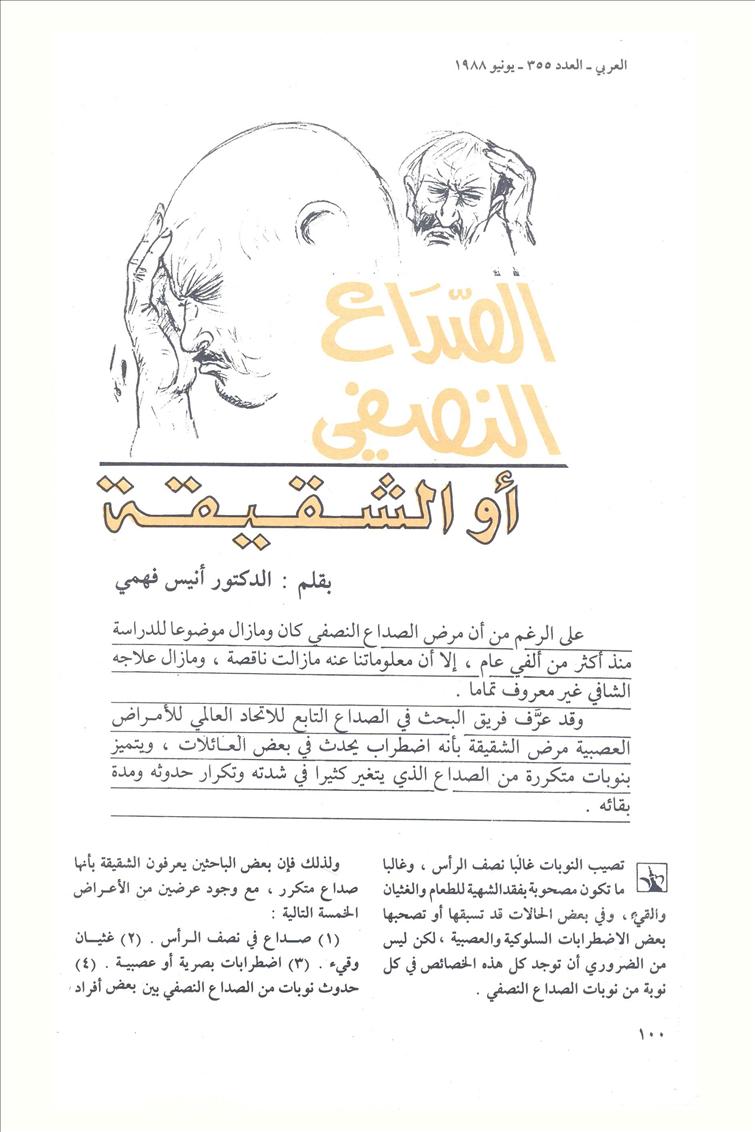 العربي ـ العدد ٣٥٥ ـ يونيو ١٩٨٨
الصّدَاع
النصفي
أو الشقيقة
بقلم : الدكتور أنيس فهمي
على الرغم من أن مرض الصداع النصفي كان ومازال موضوعا للدراسة
منذ أكثر من ألفي عام ، إلا أن معلوماتنا عنه مازالت ناقصة ، ومازال علاجه
الشافي غير معروف تماما .
وقد عرَّف فريق البحث في الصداع التابع للاتحاد العالمي للأمراض
العصبية مرض الشقيقة بأنه اضطراب يحدث في بعض العائلات ، ويتميز
بنوبات متكررة من الصداع الذي يتغير كثيرا في شدته وتكرار حدوثه ومدة
بقائه .
تصيب النوبات غالبًا نصف الرأس ، وغالبا
ما تكون مصحوبة بفقد الشهية للطعام والغثيان
والقيء ، وفي بعض الحالات قد تسبقها أو تصحبها
بعض الاضطرابات السلوكية والعصبية ، لكن ليس
من الضروري أن توجد كل هذه الخصائص في كل
نوبة من نوبات الصداع النصفي .
ولذلك فإن بعض الباحثين يعرفون الشقيقة بأنها
صداع متكرر ، مع وجود عرضين من الأعراض
الخمسة التالية :
(١) صداع في نصف الرأس . (٢) غثيان
وقيء . (٣) اضطرابات بصرية أو عصبية . (٤)
حدوث نوبات من الصداع النصفي بين بعض أفراد
١٠٠